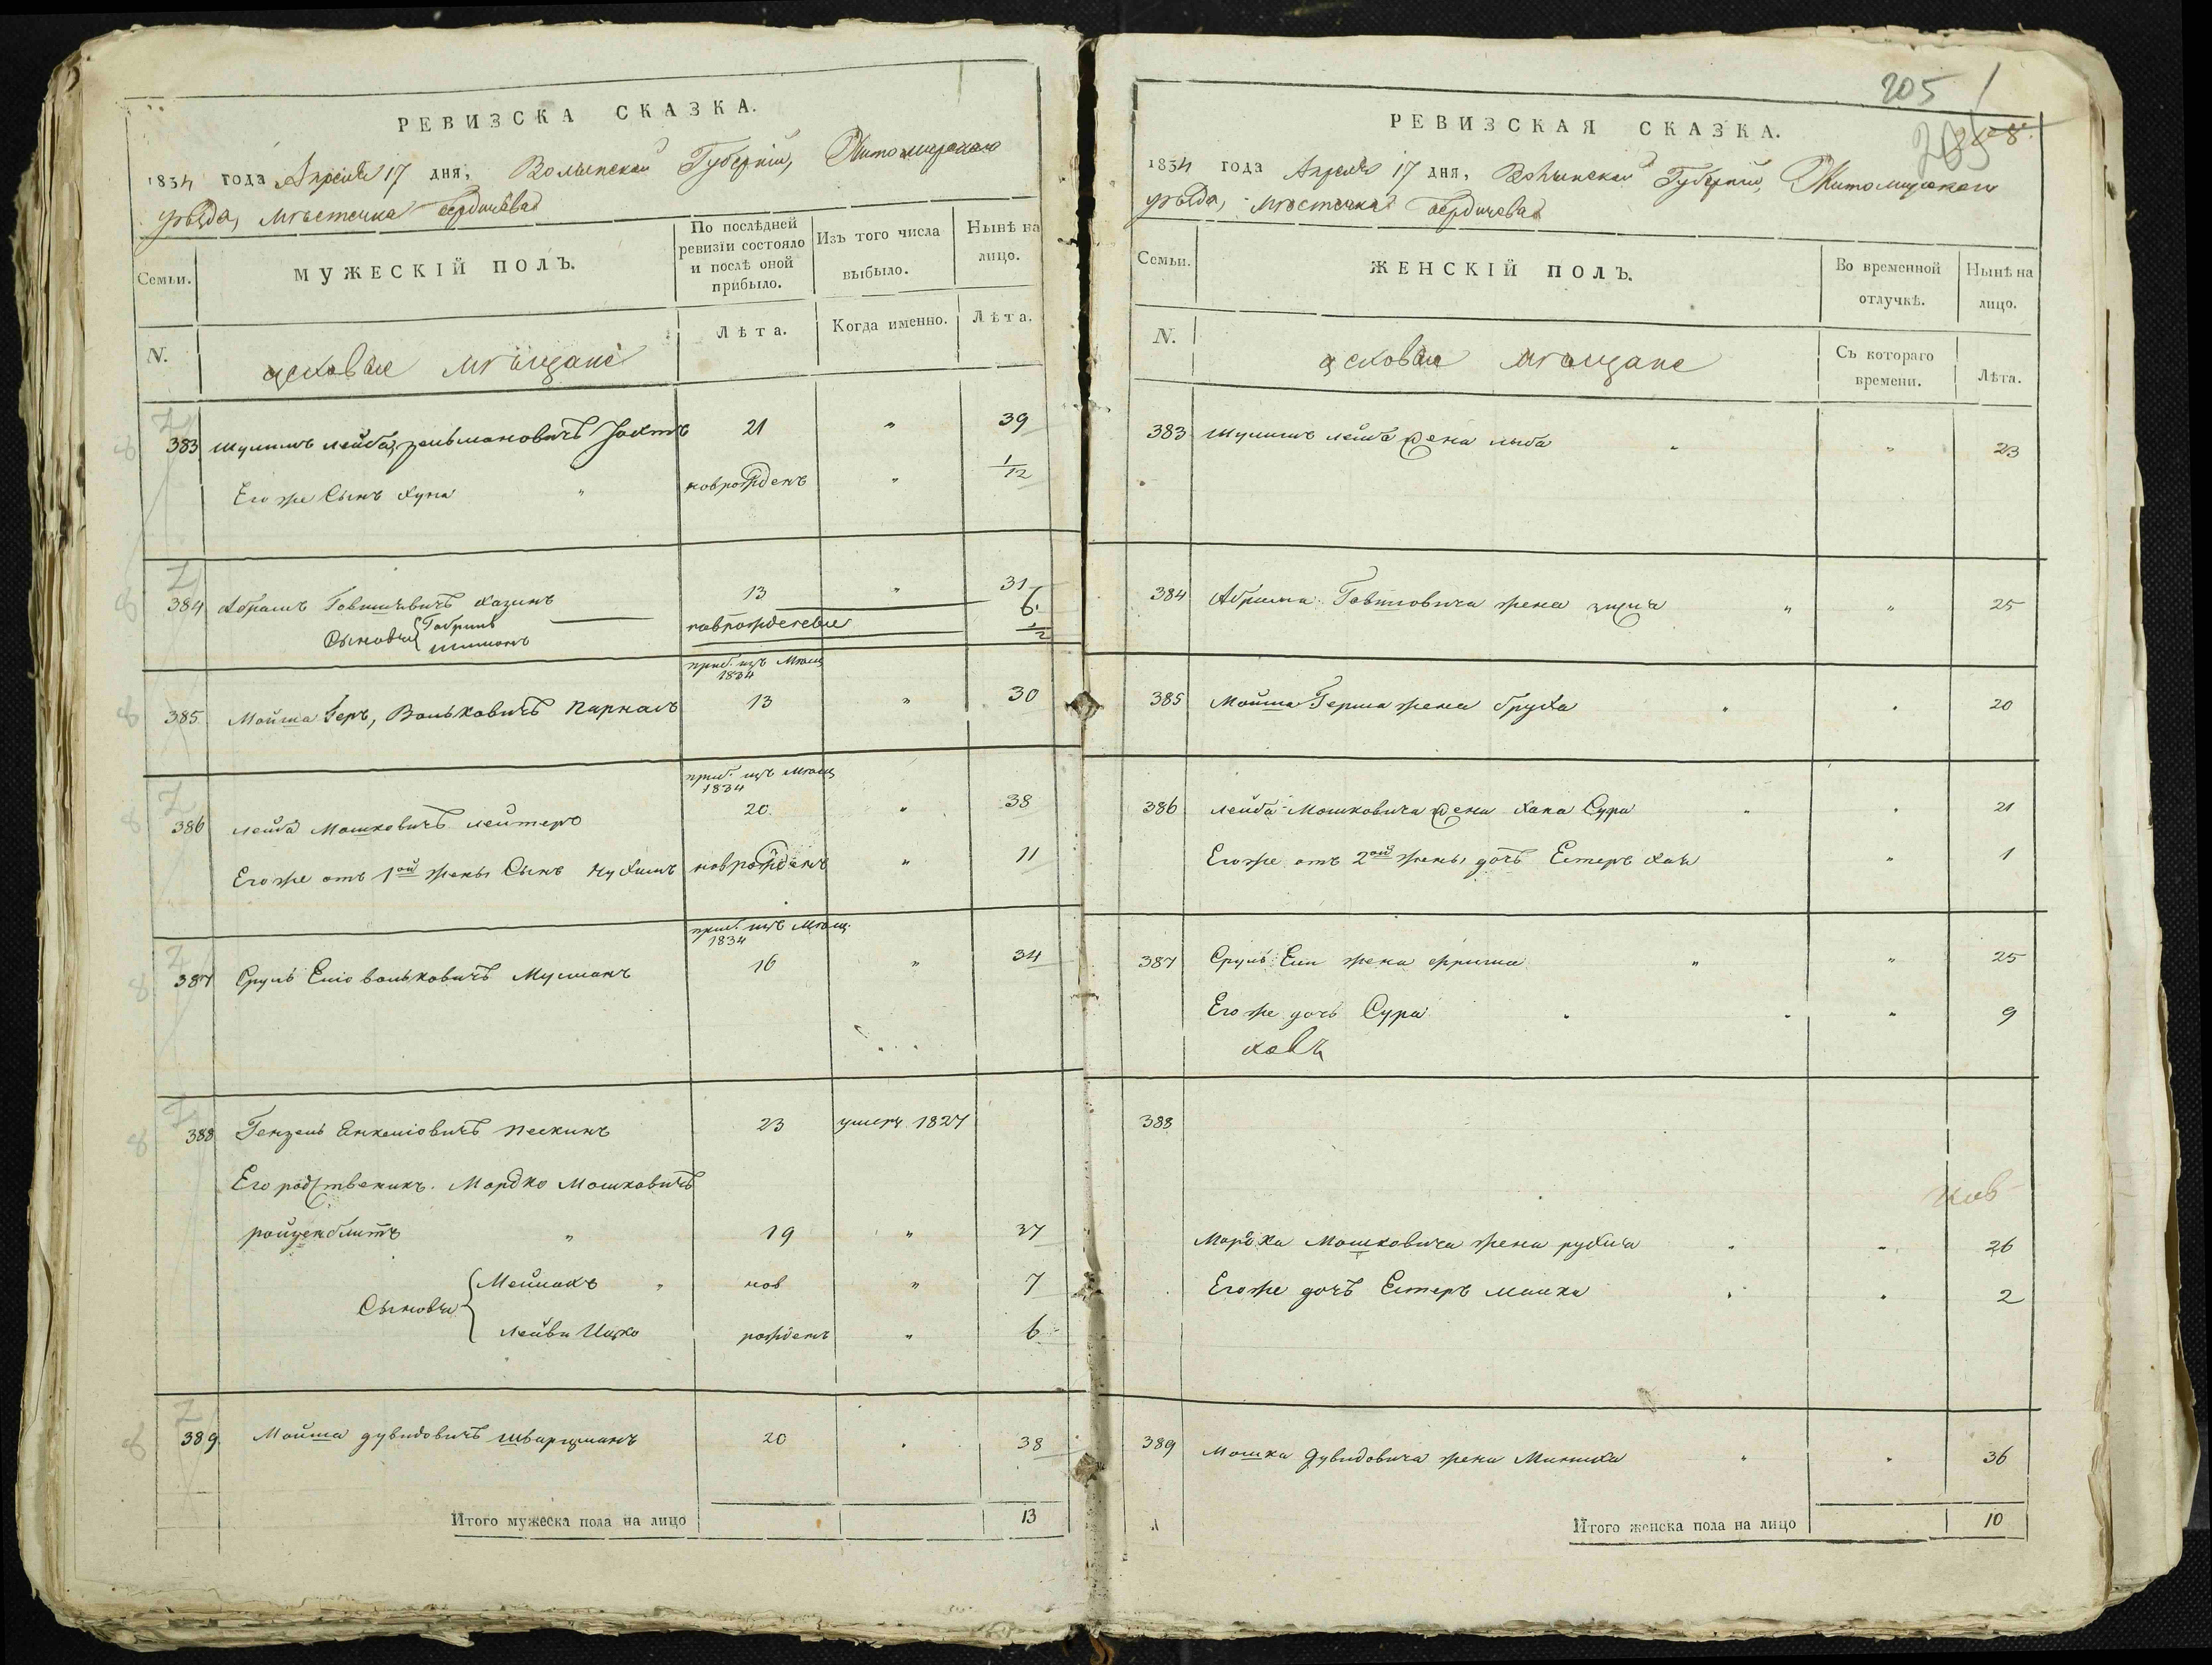 РЕВИЗСКА СКАЗКА.
1834 года Апреля 17 дня, Волынской Губернии, Житомирского
уѣзда, мѣстечка Бердичева
Семьи.
МУЖЕСКІЙ ПОЛЪ.
По послѣдней
ревизіи состояло
и послѣ оной
прибыло.
Изъ того числа
выбыло.
Нынѣ на
лицо.
N.
цеховые мѣщане
Лѣта.
Когда именно.
Лѣта.
383 Шулимъ Лейба Зельмановичъ 21 " 39
Его же Сынъ Хуна " новрожденъ " 1/12
384 Абрамъ Говшіевичъ Хазинъ 13 " 31
Сыновья новрожденные 6
Шимонъ 1/2
приб. изъ Мѣщ
1834
385 Мойша Геръ, Вольковичъ Парнасъ 13 " 30
приб. изъ Мѣщ
1834
386 Лейба Мошковичъ Лейтеръ 20 " 38
Его же отъ 1ой жены Сынъ Нухимъ новрожденъ " 11
приб. изъ Мѣщ.
1834
387 Сруль Еліо Вольковичъ Мулманъ 16 " 34
388 Гензель Енкеліовичъ Пескинъ 23 умеръ 1827
Его родственикъ Мордко Мошковичъ
ройзенблитъ " 19 " 37
Сыновья
Меилахъ " нов " 7
Лейви Ицко рожденъ " 6
389 Мойша дувидовичъ шварцманъ 20 38
Итого мужеска пола на лицо 13
205
РЕВИЗСКАЯ СКАЗКА.
1834 года Апреля 17 дня, Волынской Губерніи, Житомирского
уѣзда, мѣстечка Бердичева
Семьи.
ЖЕНСКІЙ ПОЛЪ.
Во временной
отлучкѣ.
Нынѣ на
лицо.
N.
цеховые мѣщане
Съ котораго
времени.
Лѣта.
383 Шулимъ Лейба жена Лыба " 23
384 Абрама Говшовича жена " " 25
385 Мойша Герша жена Бруха 20
386 Лейба Мошковича жена Хана Сура 21
Его же отъ 2ой жены дочь Естеръ Хая " 1
387 Сруль Еліи жена Фрима " " 25
Его же дочь Сура " 9
388
Мордка Мошковича жена рухля 26
Его же дочь Естеръ Малка 2
389 Мошка Дувидовича жена Миниха 36
Итого женска пола на лицо 10